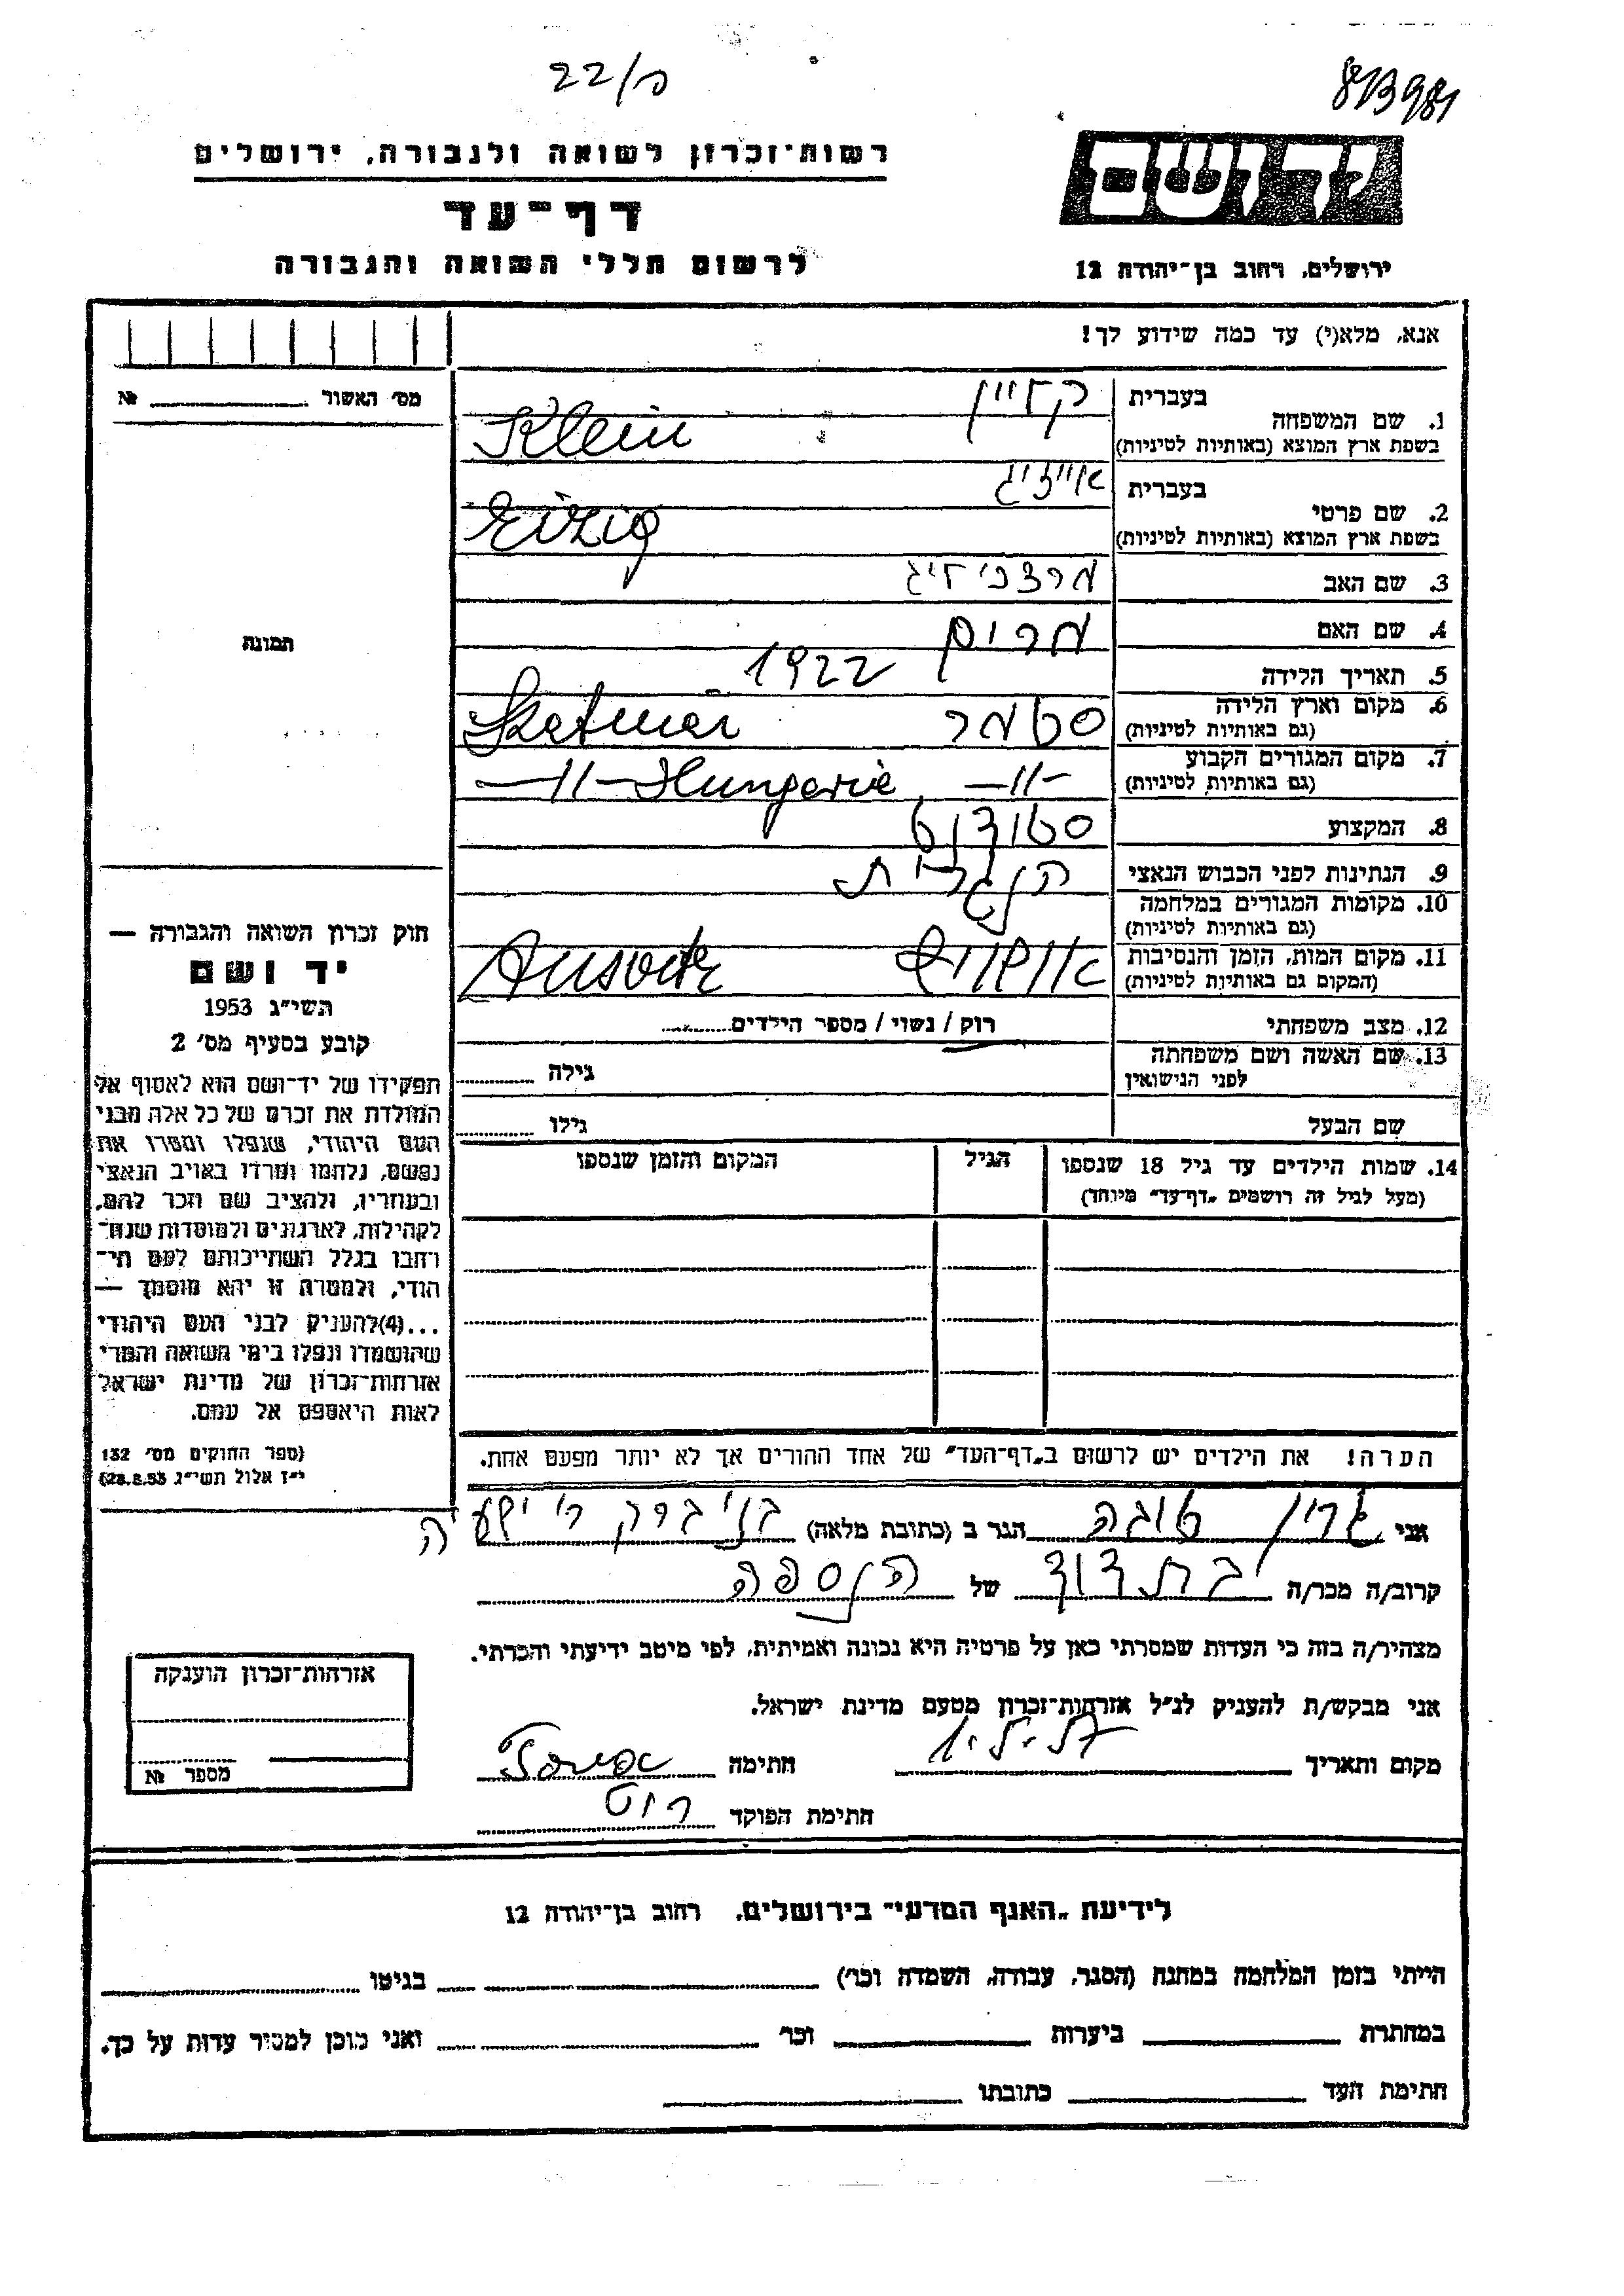 22/ח
813981
רשות-זכרון לשואה ולגבורה, ירושלים
יד ושם
דף-עד
לרשום חללי השואה והגבורה
ירושלים, רחוב בן-יהודה 12
אנא, מלא(י) עד כמה שידוע לך!
מס' האשור № 
1. שם המשפחה בעברית קליין
בשפת ארץ המוצא (באותיות לטיניות) Klein
2. שם פרטי בעברית אייזיג
בשפת ארץ המוצא (באותיות לטיניות) Eizig
3. שם האב
4. שם האם מרים
5. תאריך הלידה 1922
6. מקום וארץ הלידה (גם באותיות לטיניות) סטמר Szatmár
7. מקום המגורים הקבוע (גם באותיות לטיניות) -11- -11- Hungarie
8. המקצוע סטודנט
9. הנתינות לפני הכבוש הנאצי הנגרית
10. מקומות המגורים במלחמה (גם באותיות לטיניות)
11. מקום המות, הזמן והנסיבות (המקום גם באותיות לטיניות) אושויץ Ausvitz
12. מצב משפחתי רוק / נשוי / מספר הילדים
13. שם האשה ושם משפחתה לפני הנישואין גילה
שם הבעל גילו
14. שמות הילדים עד גיל 18 שנספו הגיל המקום והזמן שנספו
(מעל לגיל זה רושמים „דף-עד" מיוחד)
תמונה
חוק זכרון השואה והגבורה —
יד ושם
תשי"ג 1953
קובע בסעיף מס' 2
תפקידו של יד-ושם הוא לאסוף אל
המולדת את זכרם של כל אלה מבני
העם היהודי, שנפלו ומסרו את
נפשם, נלחמו ומרדו באויב הנאצי
ובעוזריו, ולהציב שם וזכר להם,
לקהילות, לארגונים ולמוסדות שנח-
רבו בגלל השתייכותם לעם הי-
הודי, ולמטרה זו יהא מוסמך —
...(4) להעניק לבני העם היהודי
שהושמדו ונפלו בימי השואה והמרי
אזרחות-זכרון של מדינת ישראל
לאות היאספם אל עמם.
(ספר החוקים מס' 132
י"ז אלול תשי"ג 28.8.53)
הערה! את הילדים יש לרשום ב„דף-העד" של אחד ההורים אך לא יותר מפעם אחת.
אני גרין טובה הגר ב (כתובת מלאה) בני ברק ר' ישעיה
קרוב/ה מכר/ה בת דוד של הנספה
מצהיר/ה בזה כי העדות שמסרתי כאן על פרטיה היא נכונה ואמיתית, לפי מיטב ידיעתי והכרתי.
אני מבקש/ת להעניק לנ"ל אזרחות-זכרון מטעם מדינת ישראל.
מקום ותאריך חתימה
חתימת הפוקד רוט
אזרחות-זכרון הוענקה
מספר №
לידיעת „האגף המדעי" בירושלים, רחוב בן-יהודה 12
הייתי בזמן המלחמה במחנה (הסגר, עבודה, השמדה וכו') בגיטו
במחתרת ביערות וכו' ואני מוכן למסור עדות על כך.
חתימת העד כתובתו